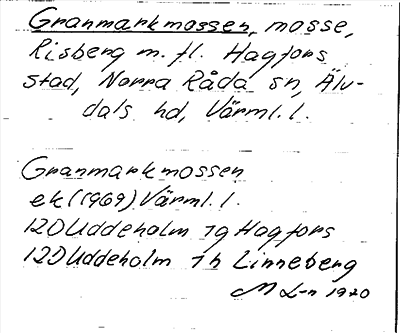 Granmarkmossen, mosse,
Risberg m. fl. Hagfors
stad, Norra Råda sn, Älv-
dals hd, Värml. l.
Granmarkmossen
ek (1969) Värml. l.
12D Uddeholm 7g Hagfors
12D Uddeholm 7h Linneberg
M L-n 1970